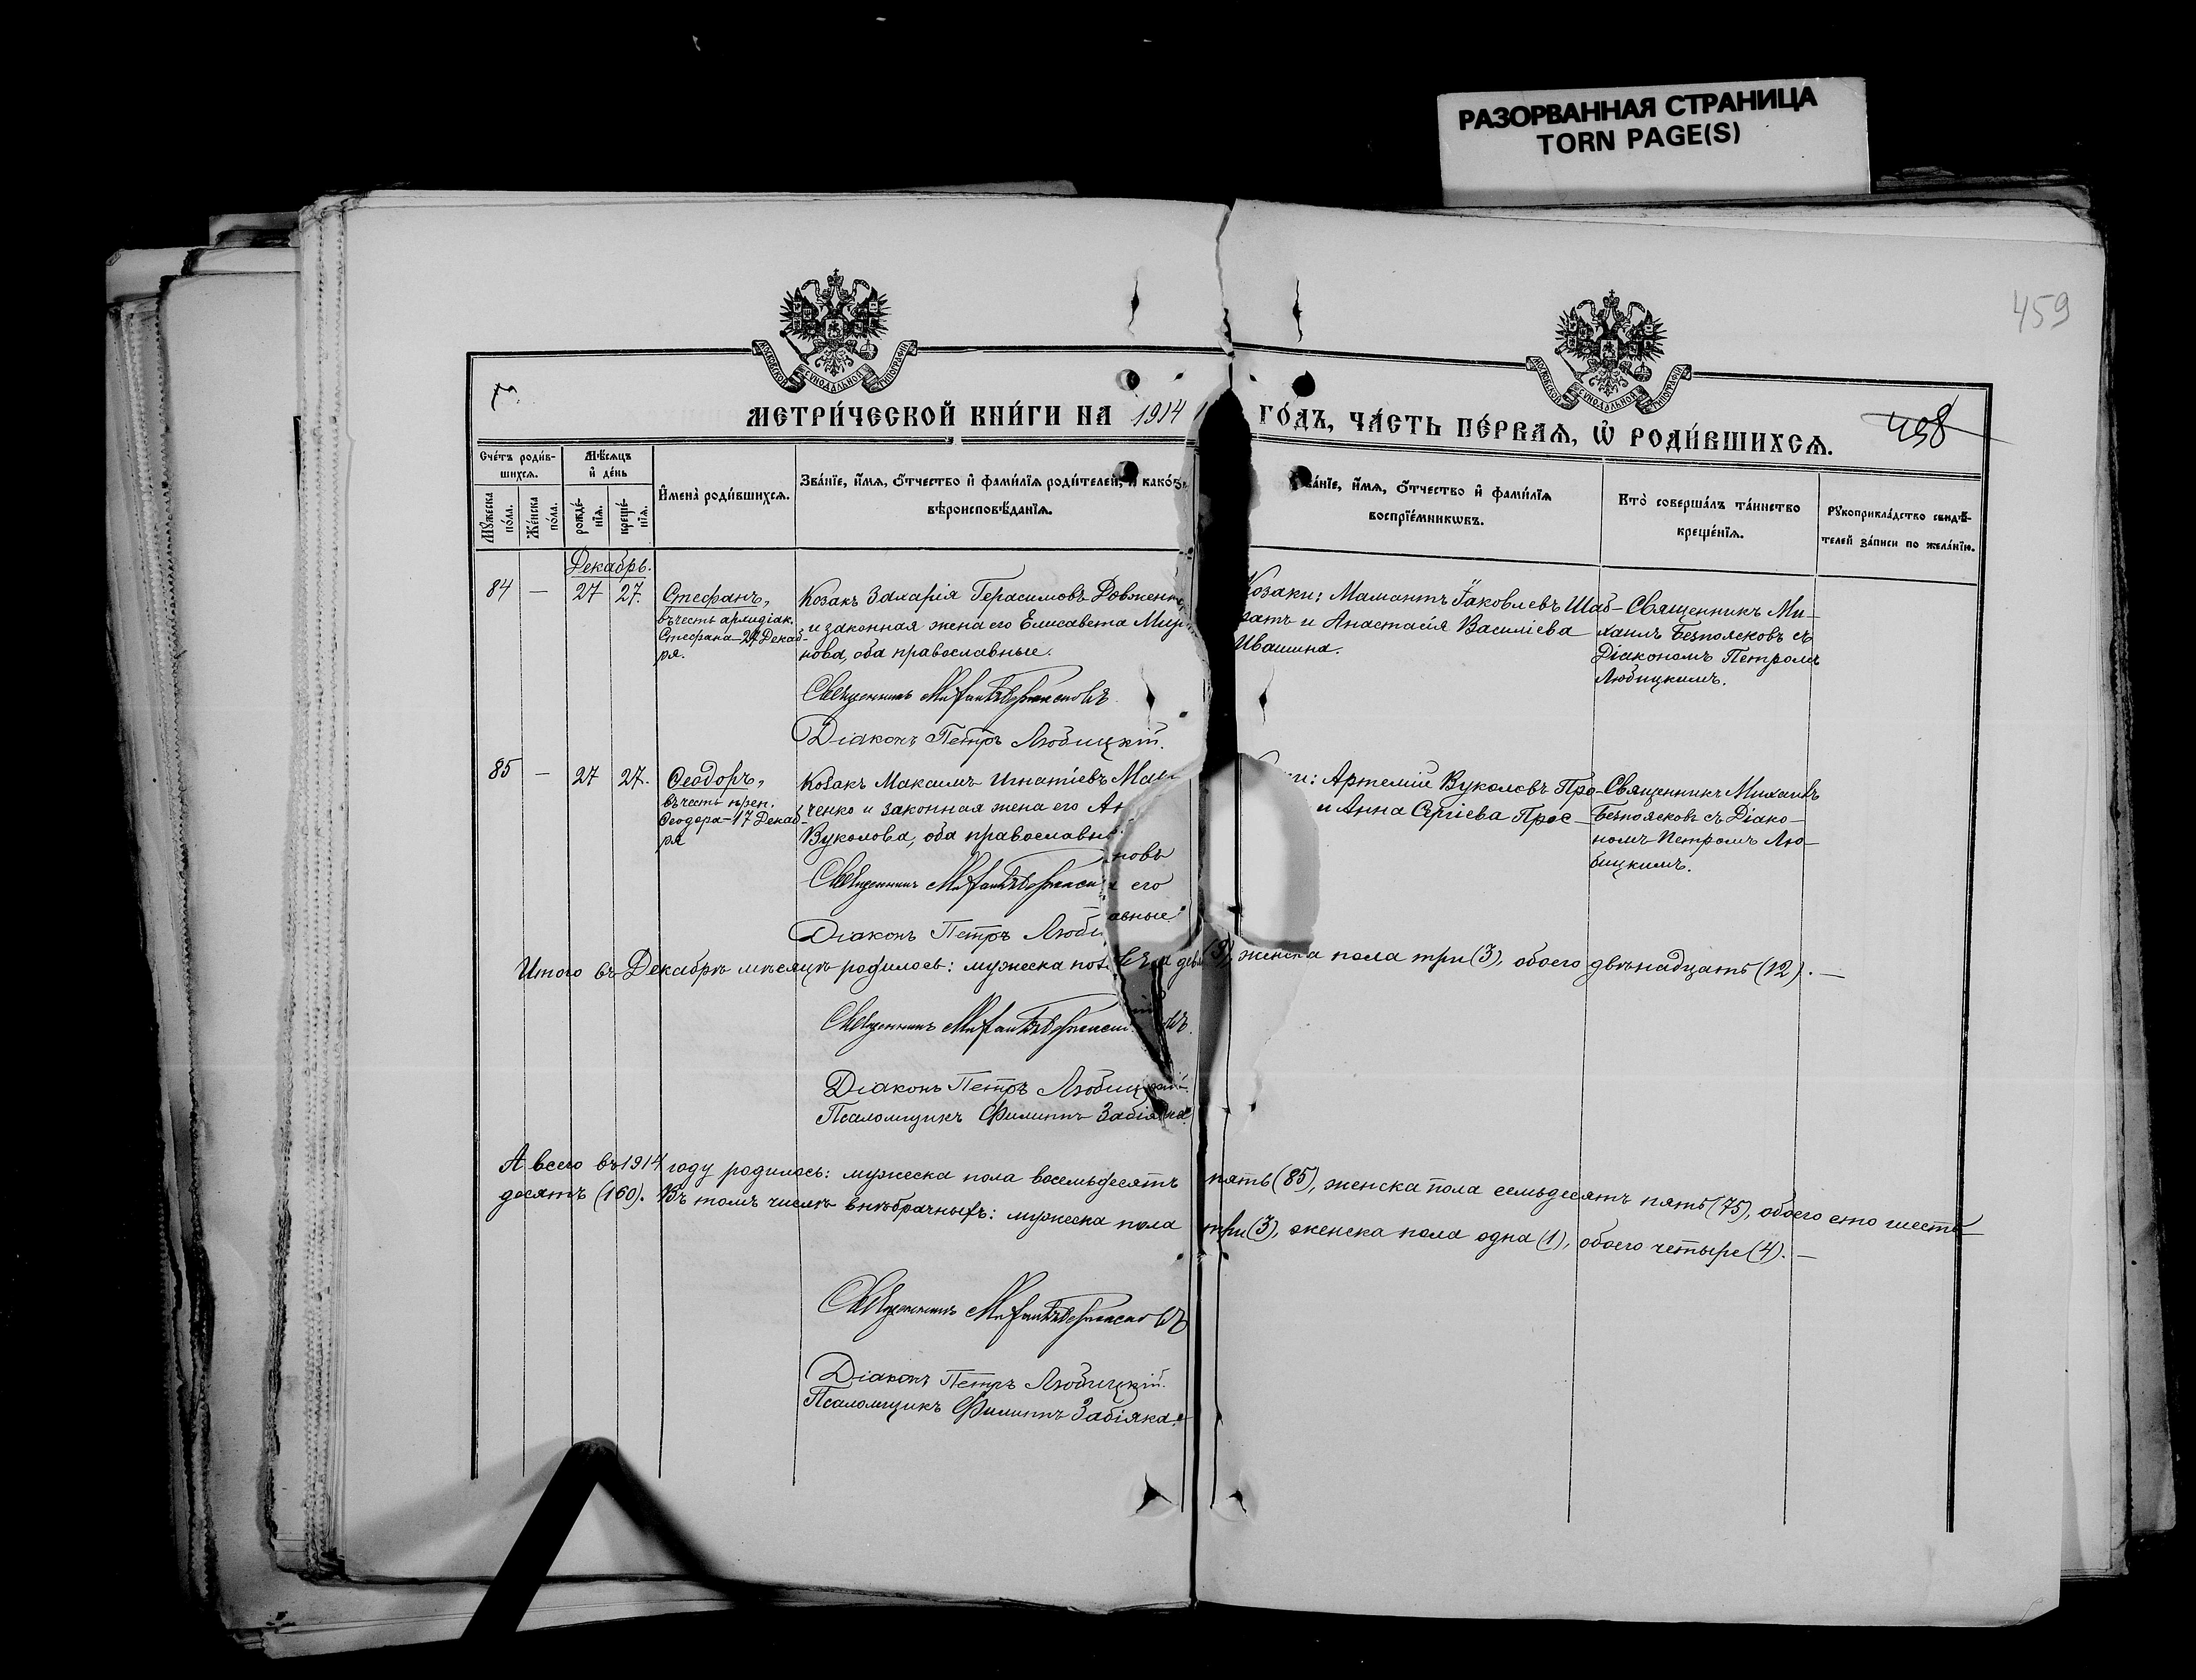 РАЗОРВАННАЯ СТРАНИЦА
TORN PAGE(S)
459
МОСКОВСКОЙ СУНОДАЛЬНОЙ ТИПОГРАФІИ
МОСКОВСКОЙ СУНОДАЛЬНОЙ ТИПОГРАФІИ
МЕТРИ́ЧЕСКОЙ КНИ́ГИ НА 1914 ГО́ДЪ, ЧА́СТЬ ПЕ́РВАѦ, Ѡ҆ РОДИ́ВШИХСѦ.
498
Сче́тъ роди́в-
шихсѧ.
Мѣ́сѧцъ
и҆ де́нь
Мꙋ́жеска
по́ла.
Же́нска
по́ла.
рожде́-
нїѧ.
креще́-
нїѧ.
И҆мена̀ роди́вшихсѧ.
Зва́нїе, и҆́мѧ, ѻ҆́тчество и҆ фами́лїѧ роди́телей, и҆ како́гѡ
вѣроисповѣ́данїѧ.
ва́нїе, и҆́мѧ, ѻ҆́тчество и҆ фами́лїѧ
воспрїе́мникѡвъ.
Кто̀ соверша́лъ та́инство
креще́нїѧ.
Рꙋкоприкла́дство свидѣ́-
телей за́писи по жела́нїю.
Декабрь.
84 — 27 27. Стефанъ,
въ честь архидіак.
Стефана—27 Декаб-
ря.
Козакъ Захарія Герасимовъ Довженко
и законная жена его Елисавета Мир
нова, оба православные.
Священникъ Михаилъ Безпоясковъ
Діаконъ Петръ Любицкій.
Козаки: Мамантъ Іаковлевъ Шаб-
ратъ и Анастасія Василіева
Ивашина.
Священникъ Ми-
хаилъ Безпоясковъ съ
Діакономъ Петромъ
Любицкимъ.
85 — 27 27. Ѳеодоръ,
въ честь преп.
Ѳеодора—17 Декаб-
ря
Козакъ Максимъ Игнатіевъ Мал
ченко и законная жена его Ан
Вуколова, оба православны
Священникъ Михаилъ Безпояск
Діаконъ Петръ Люби
новъ
его
авные
ки: Артемій Вуколовъ Про-
и Анна Сергіева Прос-
Священникъ Михаилъ
Безпоясковъ съ Діако-
номъ Петромъ Лю-
бицкимъ.
Итого въ Декабрѣ мѣсяцѣ родилось: мужеска пола девять (9), женска пола три (3), обоего двѣнадцать (12). —
Священникъ Михаилъ Безпоясковъ.
Діаконъ Петръ Любицкій.
Псаломщикъ Филиппъ Забіяка.
А всего въ 1914 году родилось: мужеска пола восемьдесятъ пять (85), женска пола семьдесятъ пять (75), обоего сто шесть-
десятъ (160). Въ томъ числѣ внѣбрачныхъ: мужеска пола три (3), женска пола одна (1), обоего четыре (4). —
Священникъ Михаилъ Безпоясковъ
Діаконъ Петръ Любицкій.
Псаломщикъ Филиппъ Забіяка.